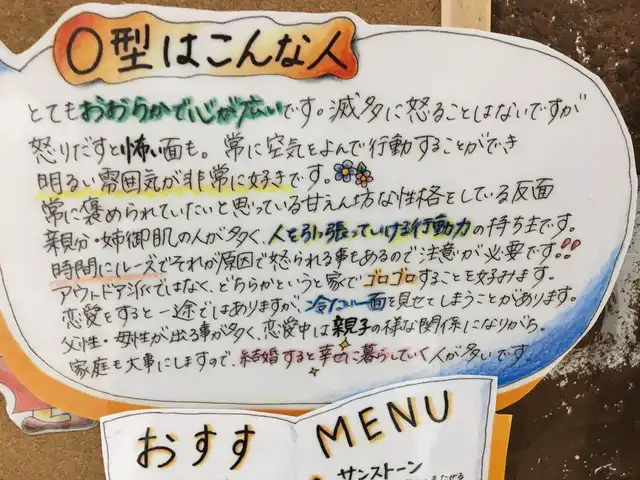 O型はこんな人
とてもおおらかで心が広いです。滅多に怒ることはないですが
怒りだすと怖い面も。常に空気をよんで行動することができ
明るい雰囲気が非常に好きです。
常に褒められていたいと思っている甘えん坊な性格をしている反面
親分・姉御肌の人が多く、人を引っ張っていける行動力の持ち主です。
時間にルーズでそれが原因で怒られる事もあるので注意が必要です!!
アウトドア派ではなく、どちらかというと家でゴロゴロすることを好みます。
恋愛をすると一途ではありますが、冷たい一面を見せてしまうことがあります。
父性・母性が出る事が多く、恋愛中は親子の様な関係になりがち。
家庭も大事にしますので、結婚すると幸せに暮らしていく人が多いです。
おすす
MENU
サンストーン